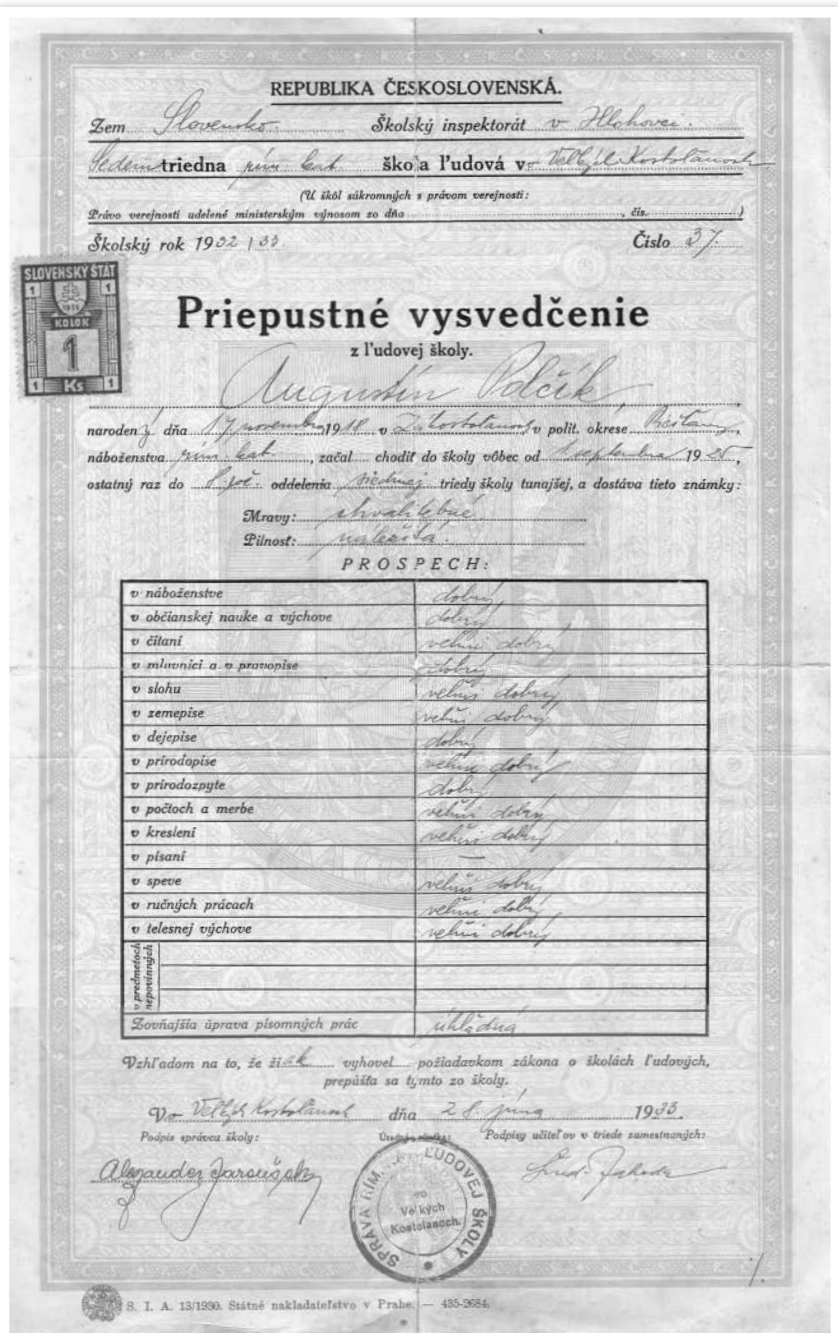 REPUBLIKA ČESKOSLOVENSKÁ.
Zem Slovensko. Školský inspektorát v Hlohovci.
Sedemtriedna rím. kat. škola ľudová vo Veľkých Kostoľanoch
(U škôl súkromných s právom verejnosti:
Právo verejnosti udelené ministerským výnosom zo dňa , čís. )
Školský rok 1932/33. Číslo 37.
SLOVENSKÝ ŠTÁT
1 1
KOLOK
1
1 Ks 1
Priepustné vysvedčenie
z ľudovej školy.
Augustín Polčík,
narodený dňa 17 novembra 1918 v polit. okrese Piešťany,
náboženstva rím. kat., začal chodiť do školy vôbec od 1 septembra 1925,
ostatný raz do 8 poč. oddelenia siedmej triedy školy tunajšej, a dostáva tieto známky:
Mravy: chvalitebné.
Pilnosť:
PROSPECH:
v náboženstve dobrý
v občianskej nauke a výchove dobrý
v čítaní veľmi dobrý
v mluvnici a v pravopise dobrý
v slohu veľmi dobrý
v zemepise veľmi dobrý
v dejepise dobrý
v prírodopise veľmi dobrý
v prírodozpyte dobrý
v počtoch a merbe veľmi dobrý
v kreslení veľmi dobrý
v písaní —
v speve veľmi dobrý
v ručných prácach veľmi dobrý
v telesnej výchove veľmi dobrý
v predmetoch nepovinných
Zovňajšia úprava písomných prác úhľadná
Vzhľadom na to, že žiak vyhovel požiadavkom zákona o školách ľudových,
prepúšťa sa týmto zo školy.
Vo Veľkých Kostoľanoch dňa 28 júna 1933.
Podpis správcu školy: Úradná pečiatka: Podpisy učiteľov v triede zamestnaných:
Alexander
SPRÁVA RÍM. KAT. ĽUDOVEJ ŠKOLY
vo
Veľkých
Kostoľanoch.
S. I. A. 13/1930. Státné nakladateľstvo v Prahe. — 435-2684.